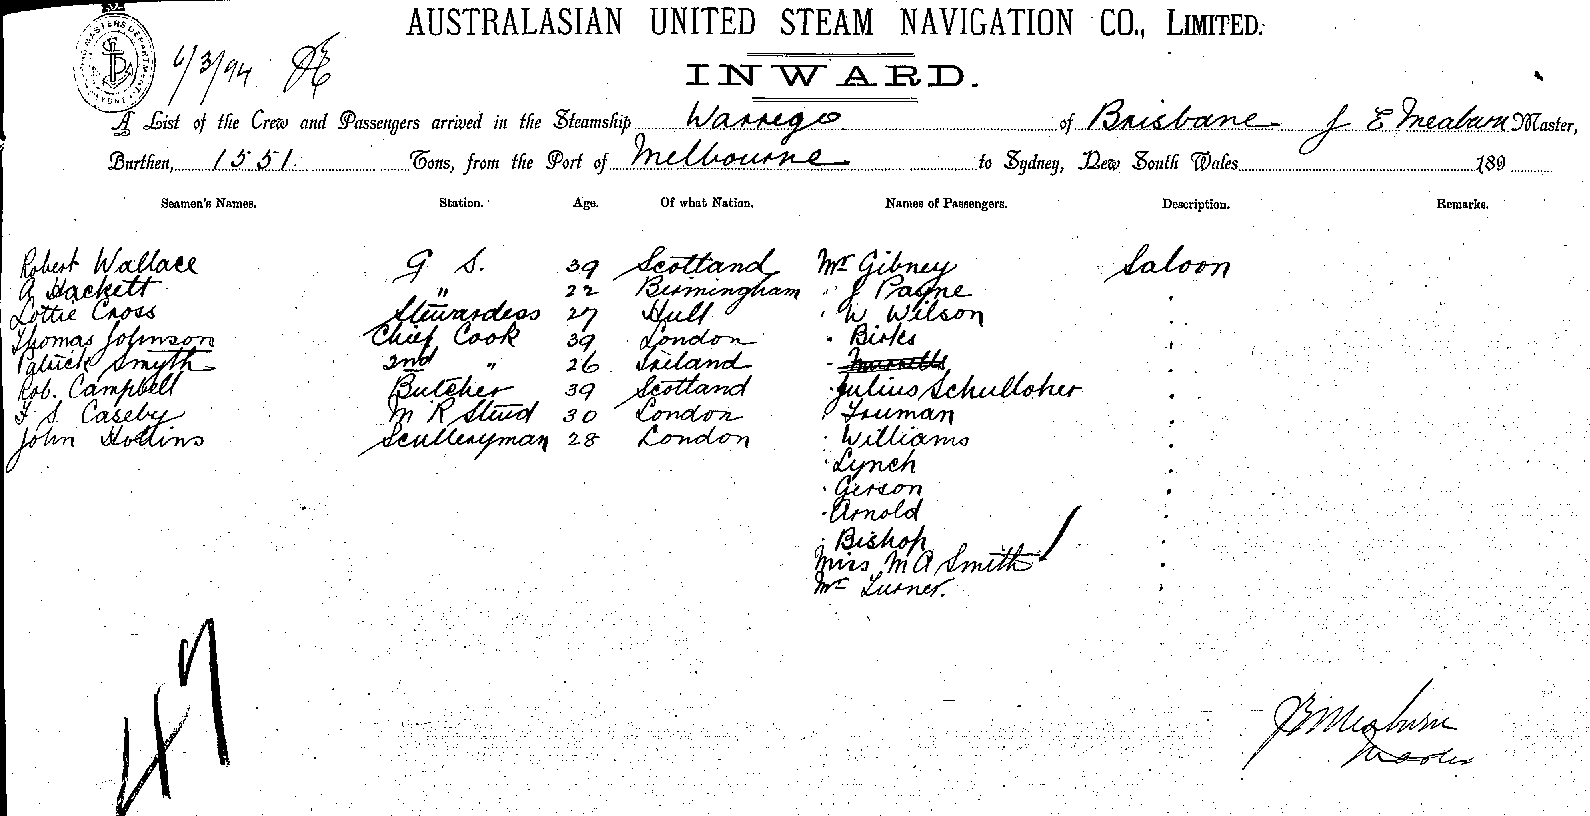 AUSTRALASIAN UNITED STEAM NAVIGATION CO., LIMITED.
6/3/94
INWARD.
A List of the Crew and Passengers arrived in the Steamship Warrego of Brisbane J E Meaburn Master,
Burthen, 1551 Tons, from the Port of Melbourne to Sydney, New South Wales 189
Seamen's Names. Station. Age. Of what Nation. Names of Passengers. Description. Remarks.
Robert Wallace G S. 39 Scotland Mr Gibney Saloon
A Hackett " 22 Birmingham " J Payne "
Lottie Cross Stewardess 27 Hull " W Wilson "
Thomas Johnson Chief Cook 39 London " Birks "
Patrick Smyth 2nd " 26 Ireland "
Rob. Campbell Butcher 39 Scotland " Julius Schulloher "
F S Caseby M R Stwd 30 London " Truman "
John Hollins Sculleryman 28 London " Williams "
" Lynch "
" Gerson "
" Arnold "
" Bishop "
Miss M A Smith "
Mr Turner. "
47
J E Meaburn
Master